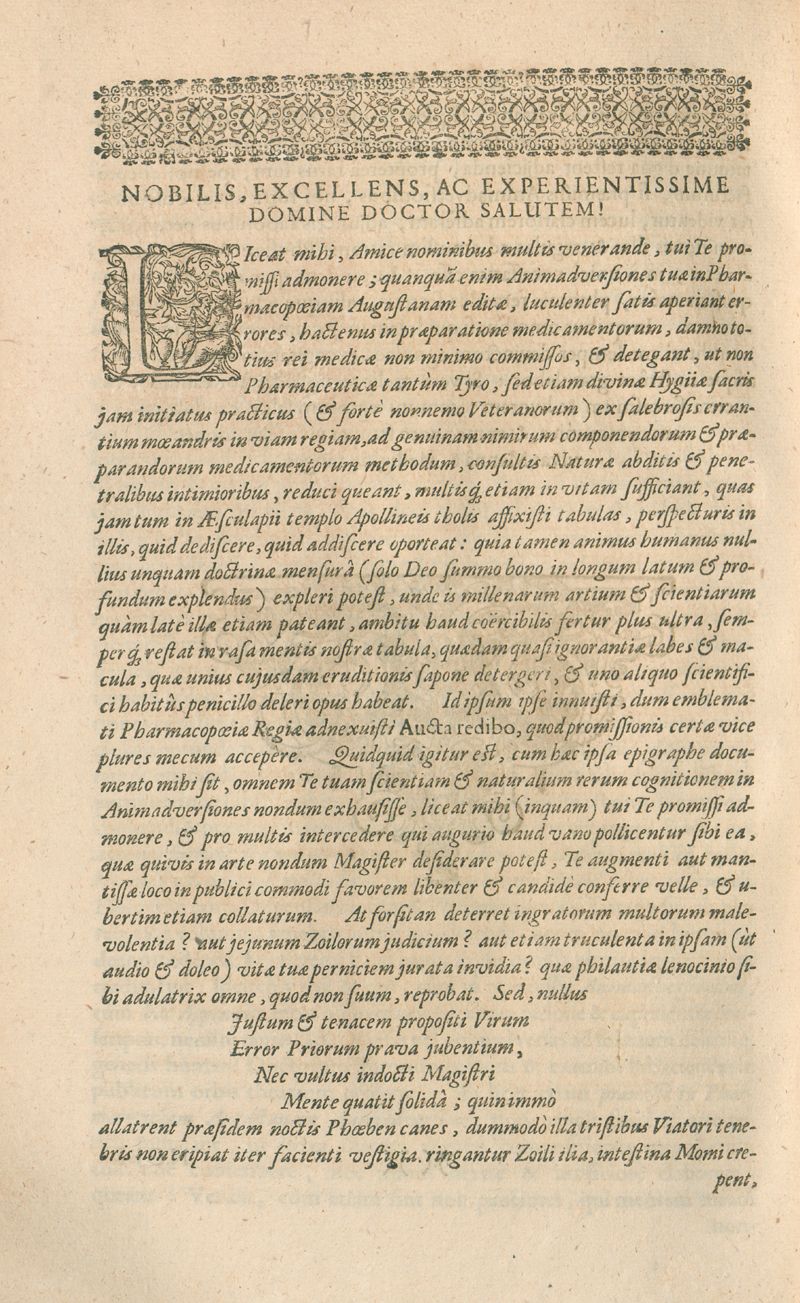 NOBILIS, EXCELLENS, AC EXPERIENTISSIME
DOMINE DOCTOR SALUTEM!
LIceat mihi, Amice nominibus multis venerande, tui Te pro-
missi admonere; quanquā enim Animadversiones tuæ in Phar-
macopœiam Augustanam editæ, luculenter satis aperiant er-
rores, hactenus in præparatione medicamentorum, damno to-
tius rei medicæ non minimo commissos, & detegant, ut non
Pharmaceuticæ tantùm Tyro, sed etiam divinæ Hygiiæ sacris
jam initiatus practicus (& fortè nonnemo Veteranorum) ex salebrosis erran-
tium mœandris in viam regiam, ad genuinam nimirum componendorum & præ-
parandorum medicamentorum methodum, consultis Naturæ abditis & pene-
tralibus intimioribus, reduci queant, multisq́; etiam in vitam sufficiant, quas
jam tum in Æsculapii templo Apollineis tholis affixisti tabulas, perspecturis in
illis, quid dediscere, quid addiscere oporteat: quia tamen animus humanus nul-
lius unquam doctrinæ mensurâ (solo Deo summo bono in longum latum & pro-
fundum explendus) expleri potest, unde is millenarum artium & scientiarum
quàm late illæ etiam pateant, ambitu haud coërcibilis fertur plus ultra, sem-
perq́; restat in rasa mentis nostræ tabula, quædam quasi ignorantiæ labes & ma-
cula, quæ unius cujusdam eruditionis sapone detergeri, & uno aliquo scientifi-
ci habitûs penicillo deleri opus habeat. Id ipsum ipse innuisti, dum emblema-
ti Pharmacopœiæ Regiæ adnexuisti Aucta redibo, quod promissionis certæ vice
plures mecum accepère. Quidquid igitur est, cum hæc ipsa epigraphe docu-
mento mihi sit, omnem Te tuam scientiam & naturalium rerum cognitionem in
Animadversiones nondum exhausisse, liceat mihi (inquam) tui Te promissi ad-
monere, & pro multis intercedere qui augurio haud vano pollicentur sibi ea,
quæ quivis in arte nondum Magister desiderare potest, Te augmenti aut man-
tissæ loco in publici commodi favorem libenter & candidè conferre velle, & u-
bertim etiam collaturum. At forsitan deterret ingratorum multorum male-
volentia? aut jejunum Zoilorum judicium? aut etiam truculenta in ipsam (ut
audio & doleo) vitæ tuæ perniciem jurata invidia? quæ philautiæ lenocinio si-
bi adulatrix omne, quod non suum, reprobat. Sed, nullus
Justum & tenacem propositi Virum
Error Priorum prava jubentium,
Nec vultus indocti Magistri
Mente quatit solidâ; quinimmò
allatrent præsidem noctis Phœben canes, dummodò illa tristibus Viatori tene-
bris non eripiat iter facienti vestigia. ringantur Zoili ilia, intestina Momi cre-
pent,